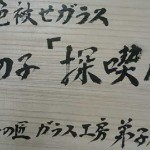 色被せガラス
の子「探喫
の匠 ガラス工房 弟子